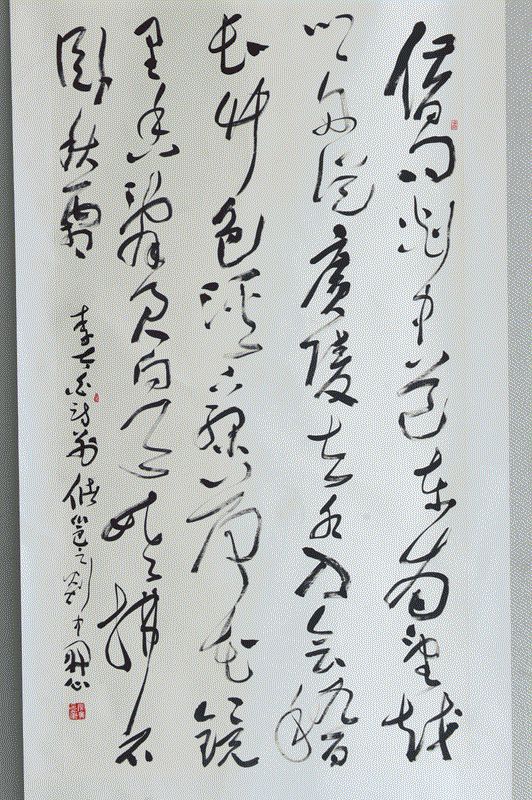 借問剡中道東南望越
鄉舟從廣陵去水入会稽
長竹色溪下綠荷花鏡
里香辭君向天姥拂石
臥秋霜
李太白詩別儲邕之剡中